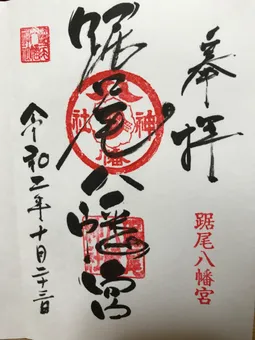 奉拝
踞尾八幡宮
踞尾八幡宮
令和二年十月二十三日